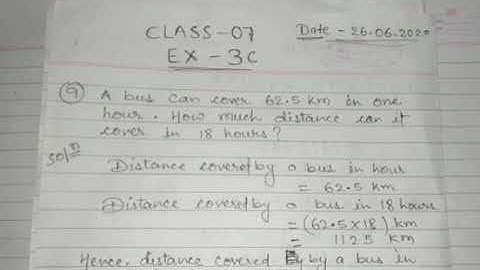 CLASS-07
Date - 26.06.2020
EX - 3C
9 A bus can cover 62.5 km in one
hour. How much distance can it
cover in 18 hours?
Solⁿ
Distance covered by a bus in hour
= 62.5 km
Distance covered by a bus in 18 hours
= (62.5 x 18) km
= 1125 km
Hence, distance covered by a bus in